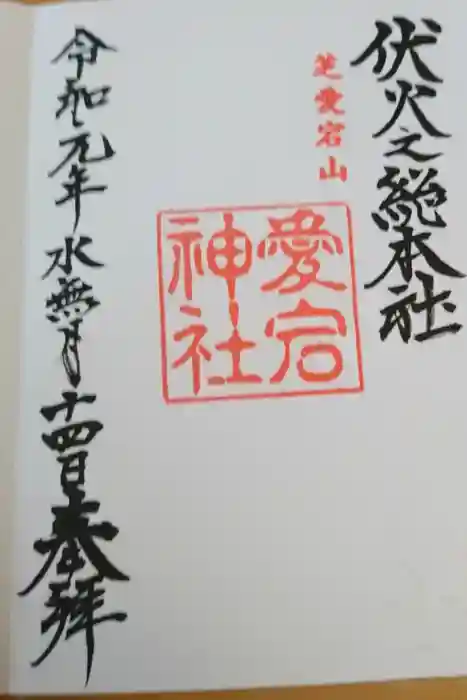 伏火之総本社
芝愛宕山
愛宕
神社
令和元年水無月十四日奉拝